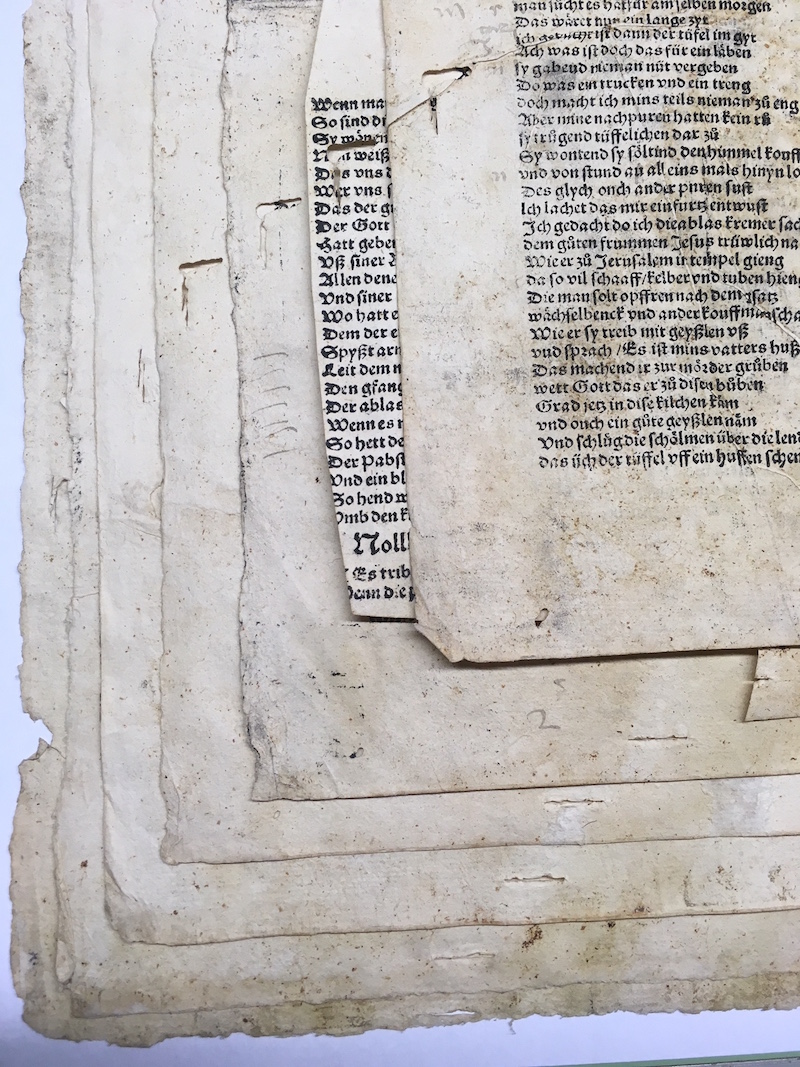 Wenn ma
So sind di
Sy wönen
weiß
Das vns d
Wer vns s
Das der g
Der Gott
Hatt gebe
Vß siner
Allen dene
Vnd siner
Wo hatt e
Dem der e
Spyßt arm
Leit dem n
Den gfang
Der ablas
Wenn es n
So hett de
Der Pabst
Vnd ein bl
So hend w
Vmb den k
Noll
Es trib
Wann die p
man sücht es hat für am selben morgen
Das wäret nun ein lange zyt
ich ist dann der tüfel im gyt
Ach was ist doch das für ein läben
sy gabend nieman nüt vergeben
Do was ein trucken vnd ein treng
doch macht ich mins teils nieman zů eng
Aber mine nachpuren hatten kein rů
sy trügend tüffelichen dar zů
Sy wontend sy söltind den hümmel kouff
vnd von stund an all eins mals hinyn lo
Des glych ouch ander puren sust
Ich lachet das mir ein furtz entwust
Ich gedacht do ich die ablas kremer sach
dem gůten frummen Jesus trüwlich na
Wie er zů Jerusalem in tempel gieng
da so vil schaaff/kelber vnd tuben hieng
Die man solt opffren nach dem gsatz
wächselbenck vnd ander kouffmanscha
Wie er sy treib mit geyßlen vß
vnd sprach /Es ist mins vatters huß
Das machend ir zur mörder grůben
wett Gott das er zů disen bůben
Grad jetz in dise kilchen käm
vnd ouch ein gůte geyßlen näm
Vnd schlůg die schölmen über die lend
das üch der tüffel vff ein huffen schen
2